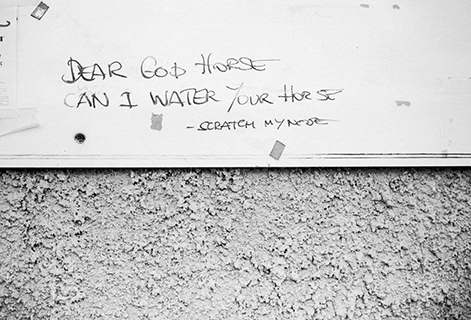 DEAR GOD HORSE
CAN I WATER YOUR HORSE
- SCRATCH MY NOSE